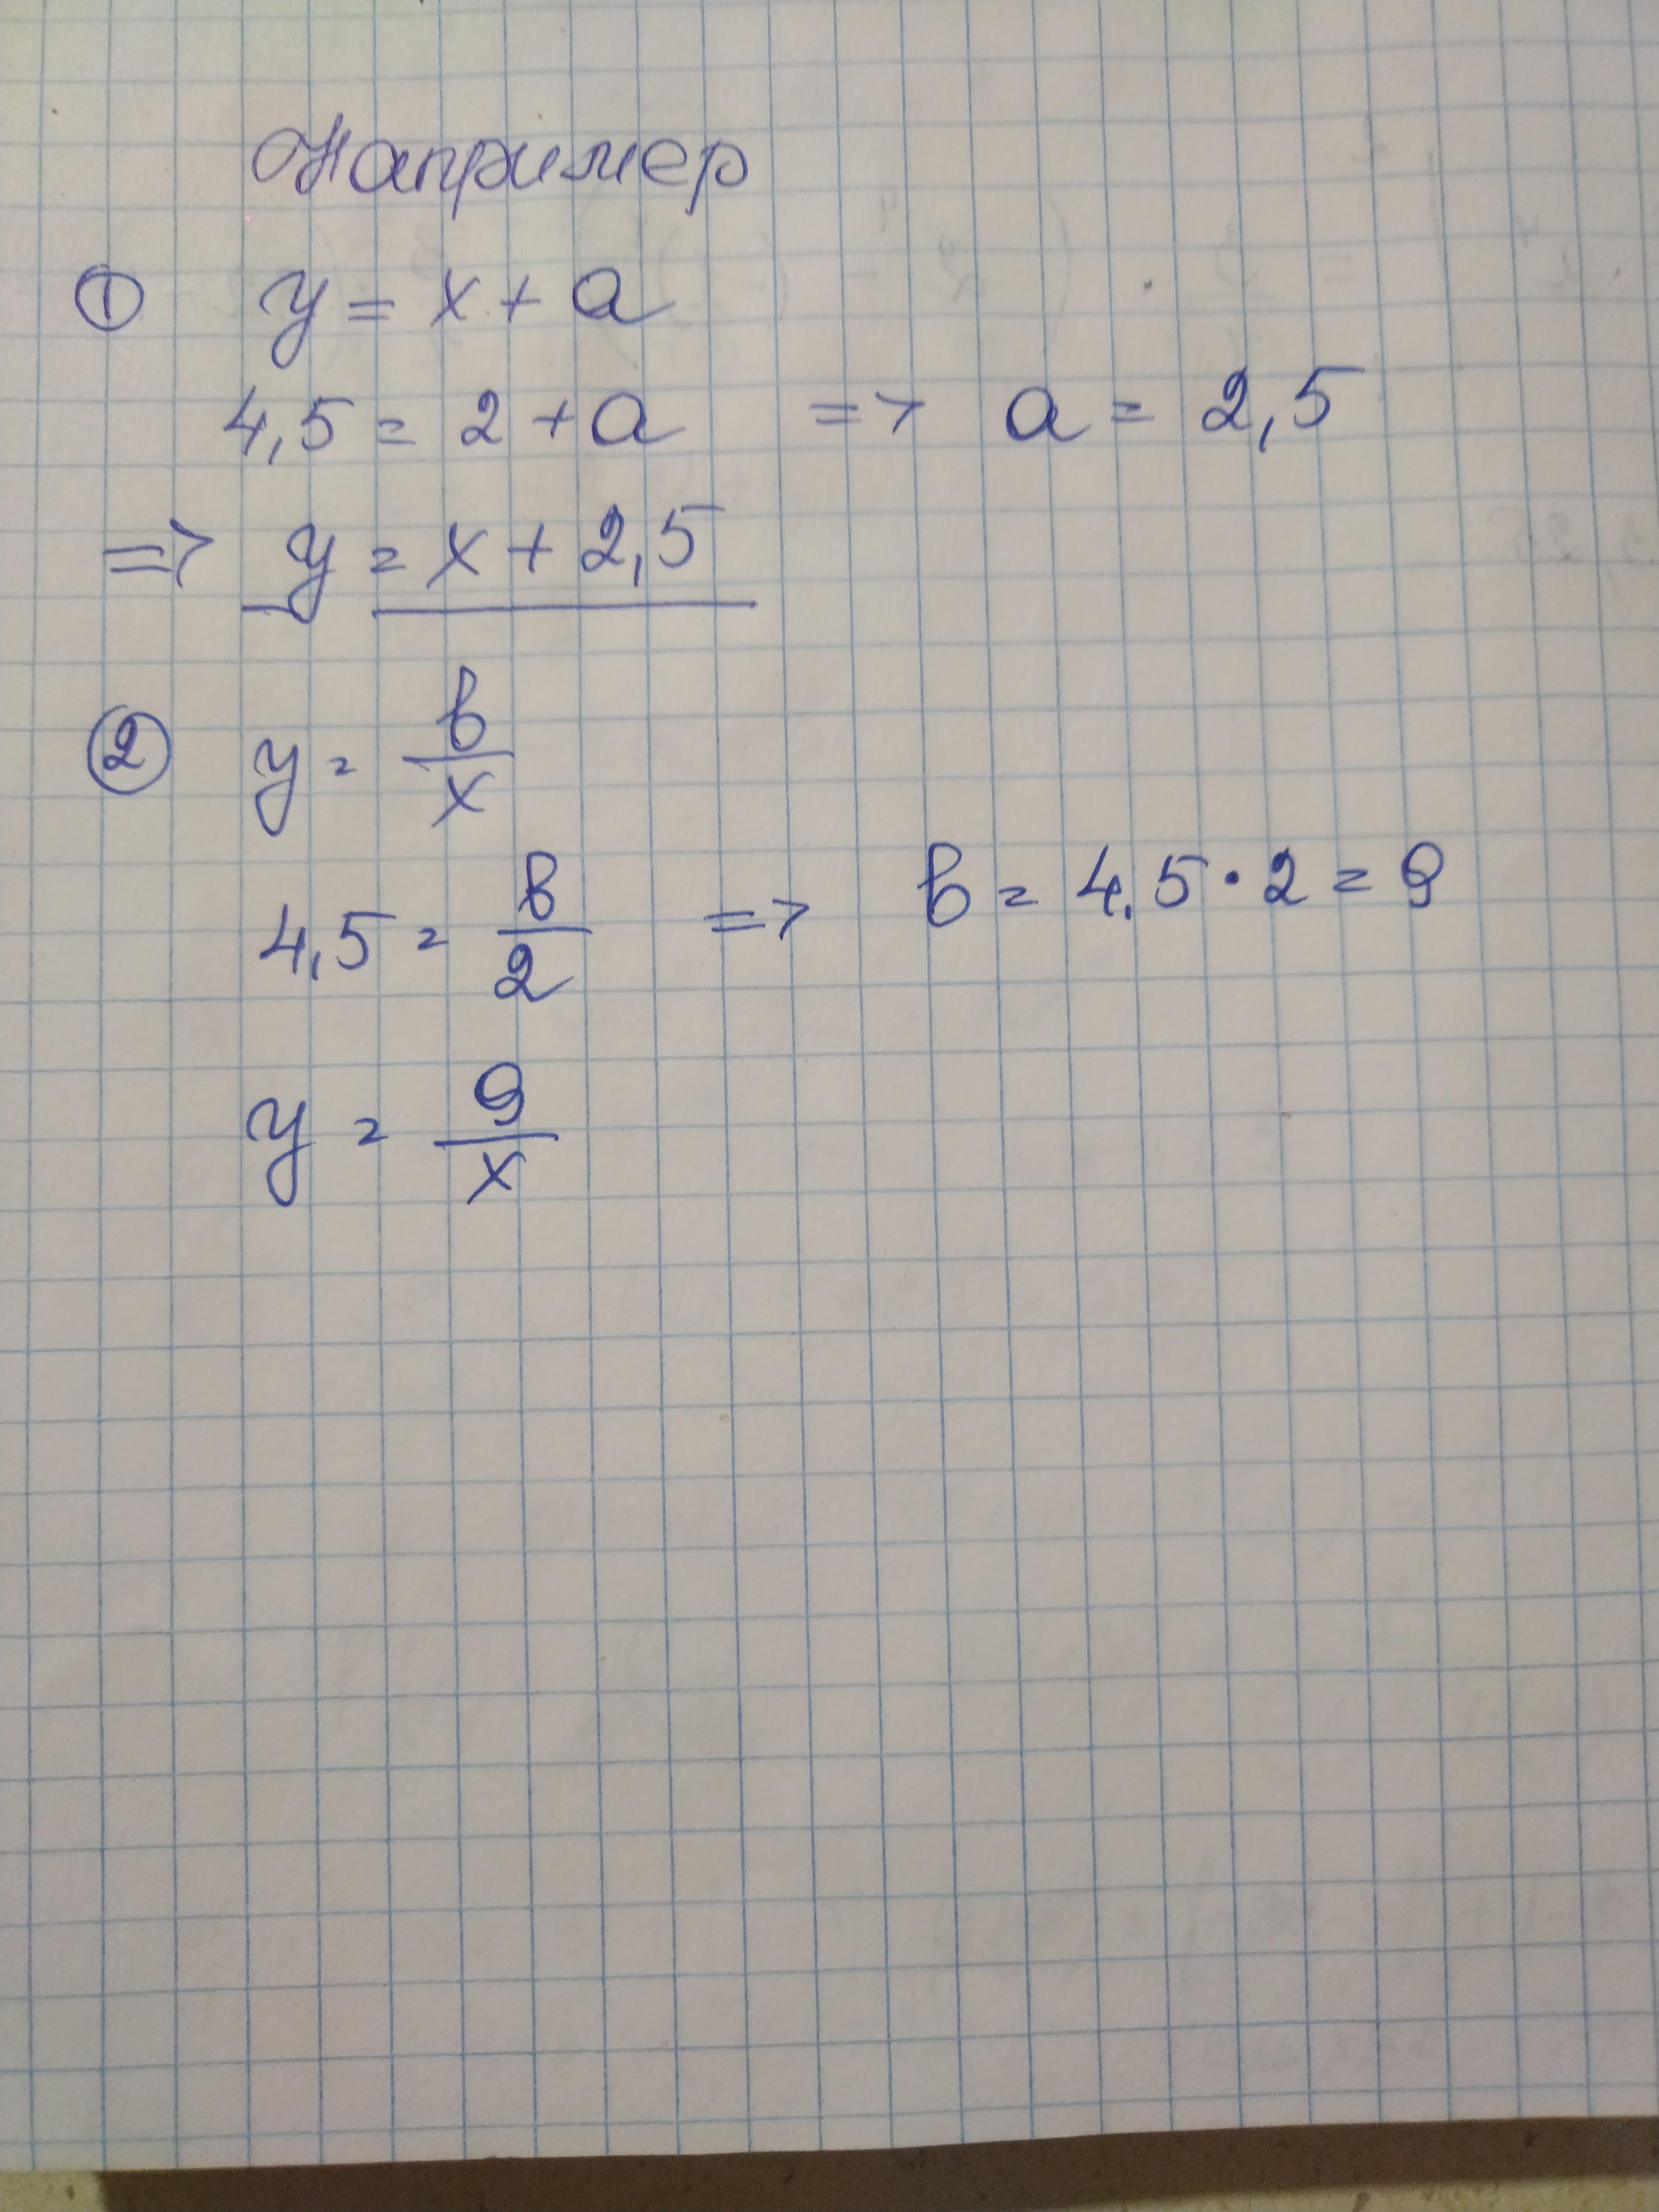 Например
① y = x + a
4,5 = 2 + a => a = 2,5
=> y = x + 2,5
② y = b/x
4,5 = b/2 => b = 4,5 · 2 = 9
y = 9/x